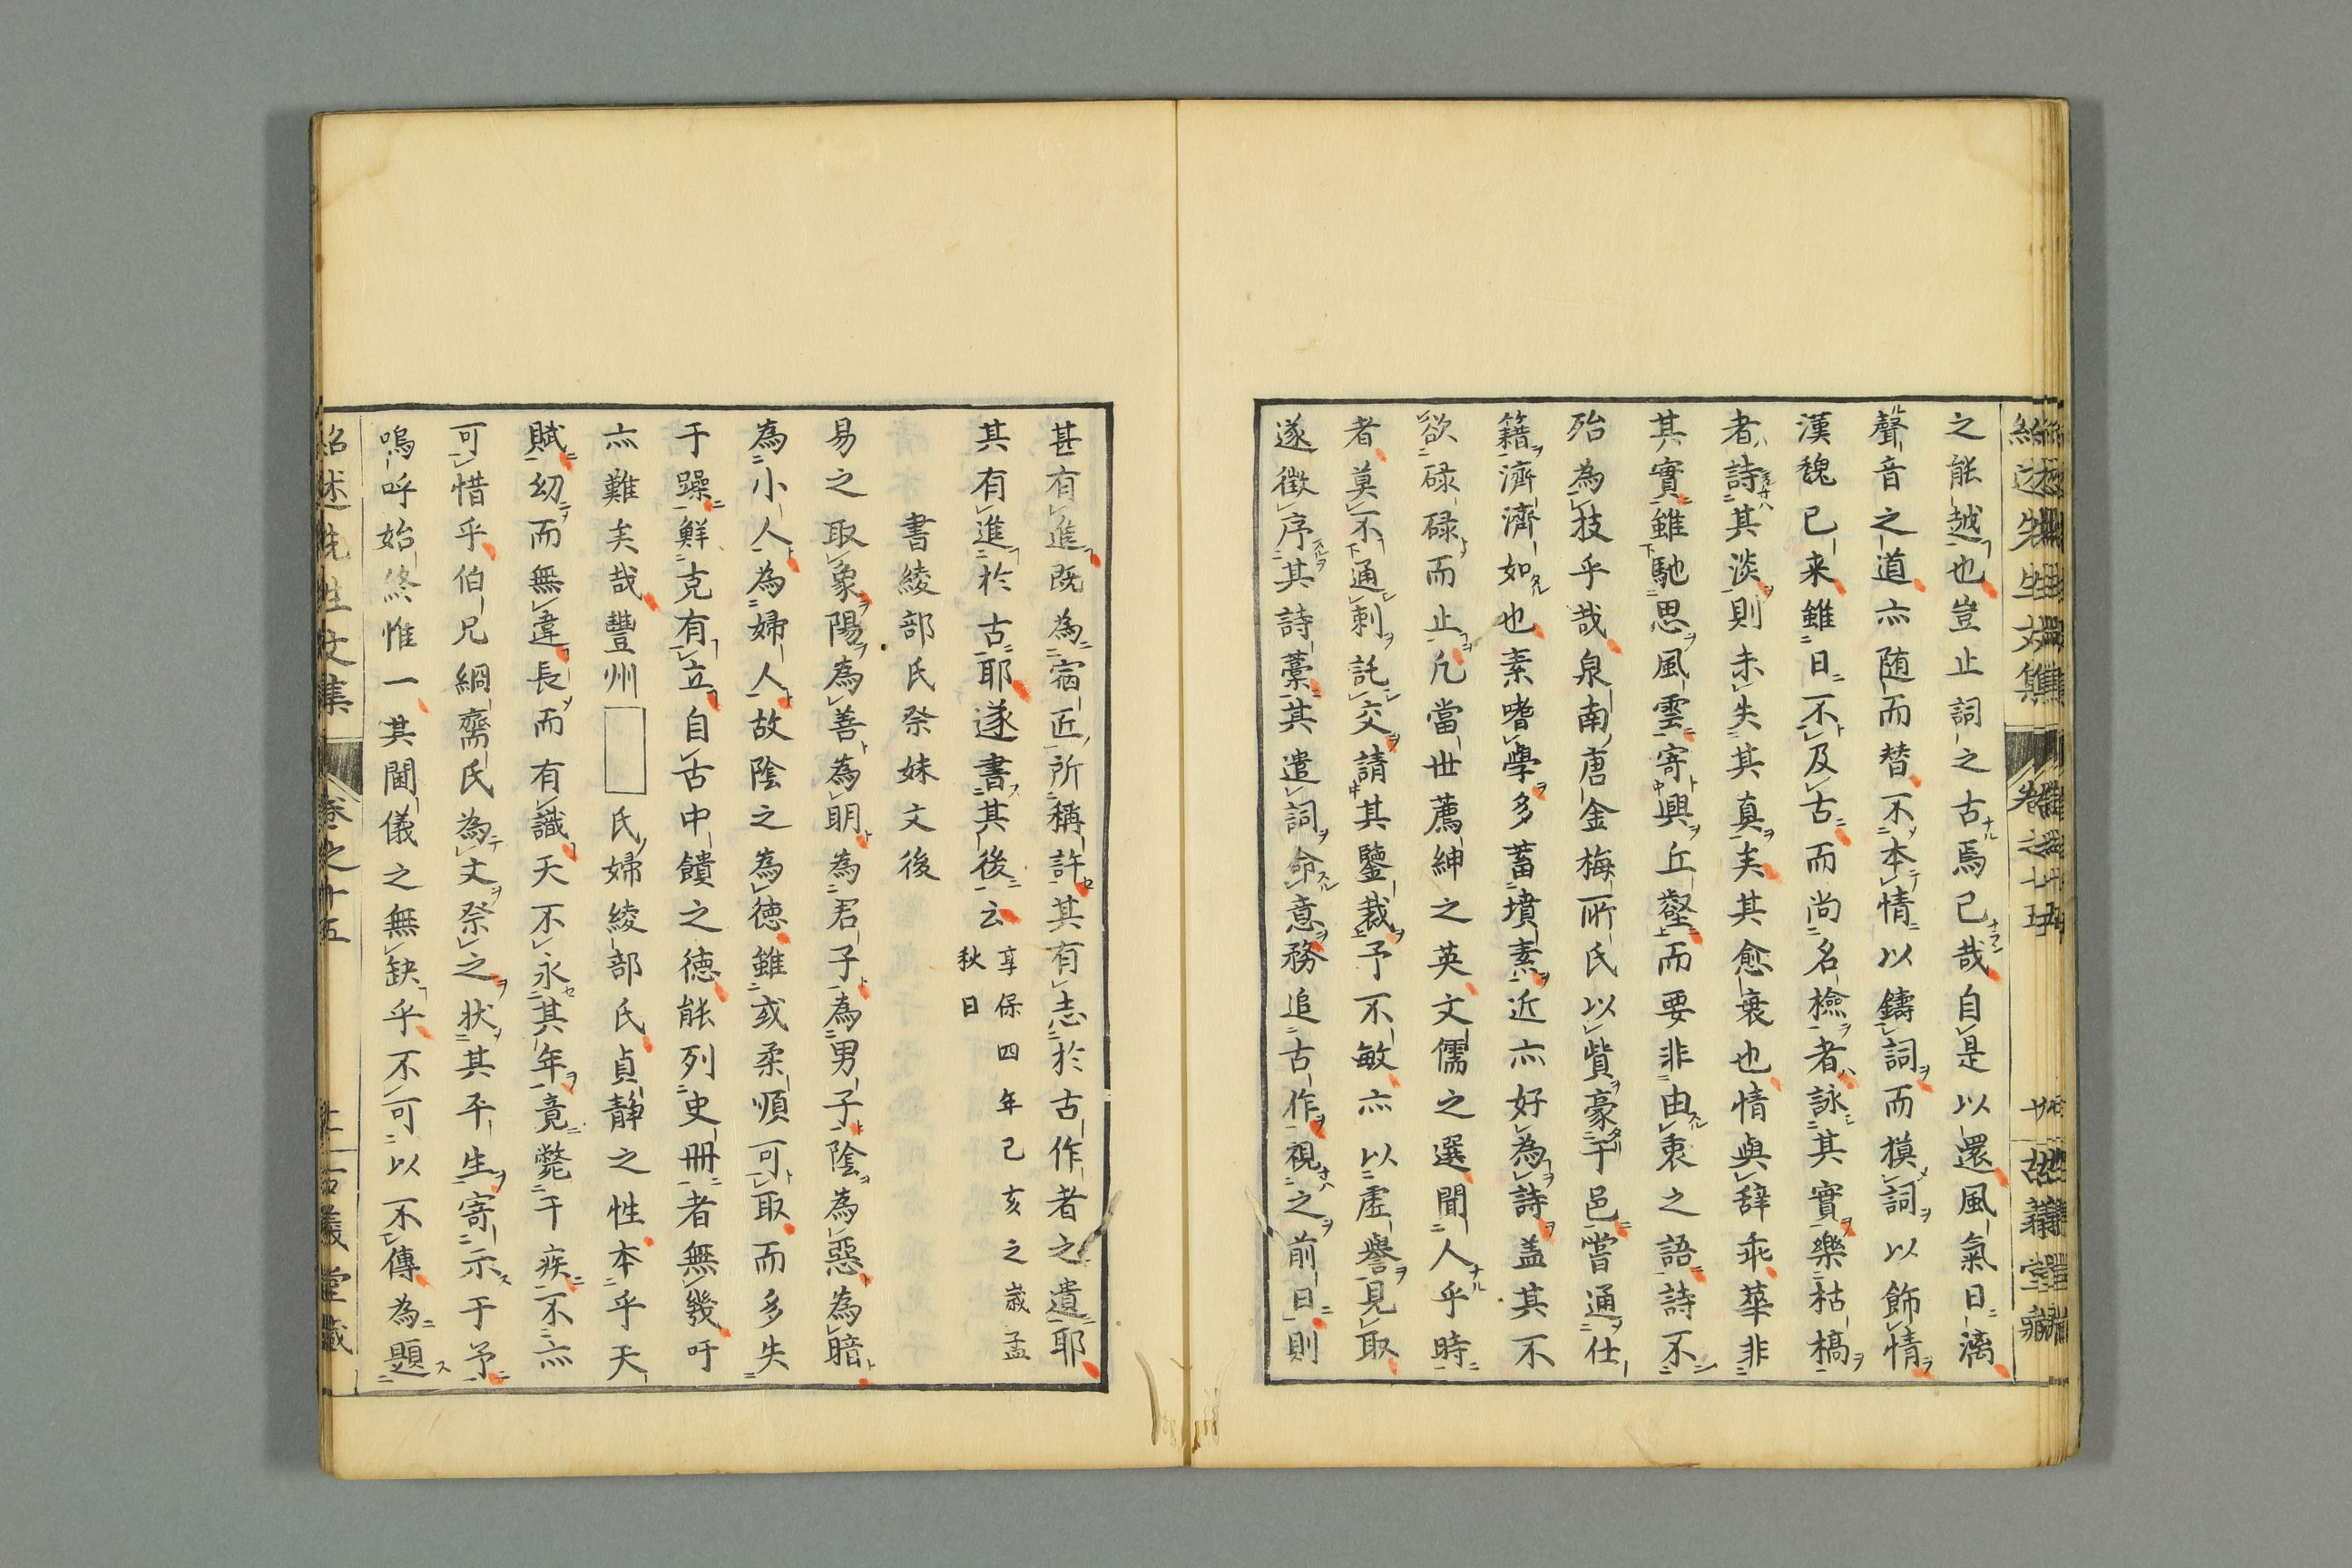 紹述先生文集 卷之十五 古義堂藏
之能越也豈止詞之古焉已哉自是以還風氣日漓
聲音之道亦随而替不本情以鑄詞而模詞以飾情
漢魏已来雖日不及古而尚名檢者詠其實樂枯槁
者詩其淡則未失其真矣其愈衰也情與辞乖華非
其實雖馳思風雲寄興丘壑而要非由衷之語詩不
殆為技乎哉泉南唐金梅所氏以貲豪于邑嘗通仕
籍濟濟如也素嗜學多蓄墳素近亦好為詩盖其不
欲碌碌而止凡當世薦紳之英文儒之選聞人乎時
者莫不通刺託交請其鑒裁予不敏亦以虚譽見取
遂徴序其詩藁其遣詞命意務追古作視之前日則
甚有進既為宿匠所稱許其有志於古作者之遺耶
其有進於古耶遂書其後云 享保四年己亥之歳孟
秋日
書綾部氏祭妹文後
易之取象陽為善為明為君子為男子陰為惡為暗
為小人為婦人故陰之為徳雖或柔順可取而多失
于躁鮮克有立自古中饋之徳能列史冊者無幾吁
亦難矣哉豐州 氏婦綾部氏貞静之性本乎天
賦幼而無違長而有識天不永其年竟斃于疾不亦
可惜乎伯兄絅齋氏為文祭之状其平生寄示于予
嗚呼始終惟一其閫儀之無缺乎不可以不傳為題
紹述先生文集 卷之十五 古義堂藏